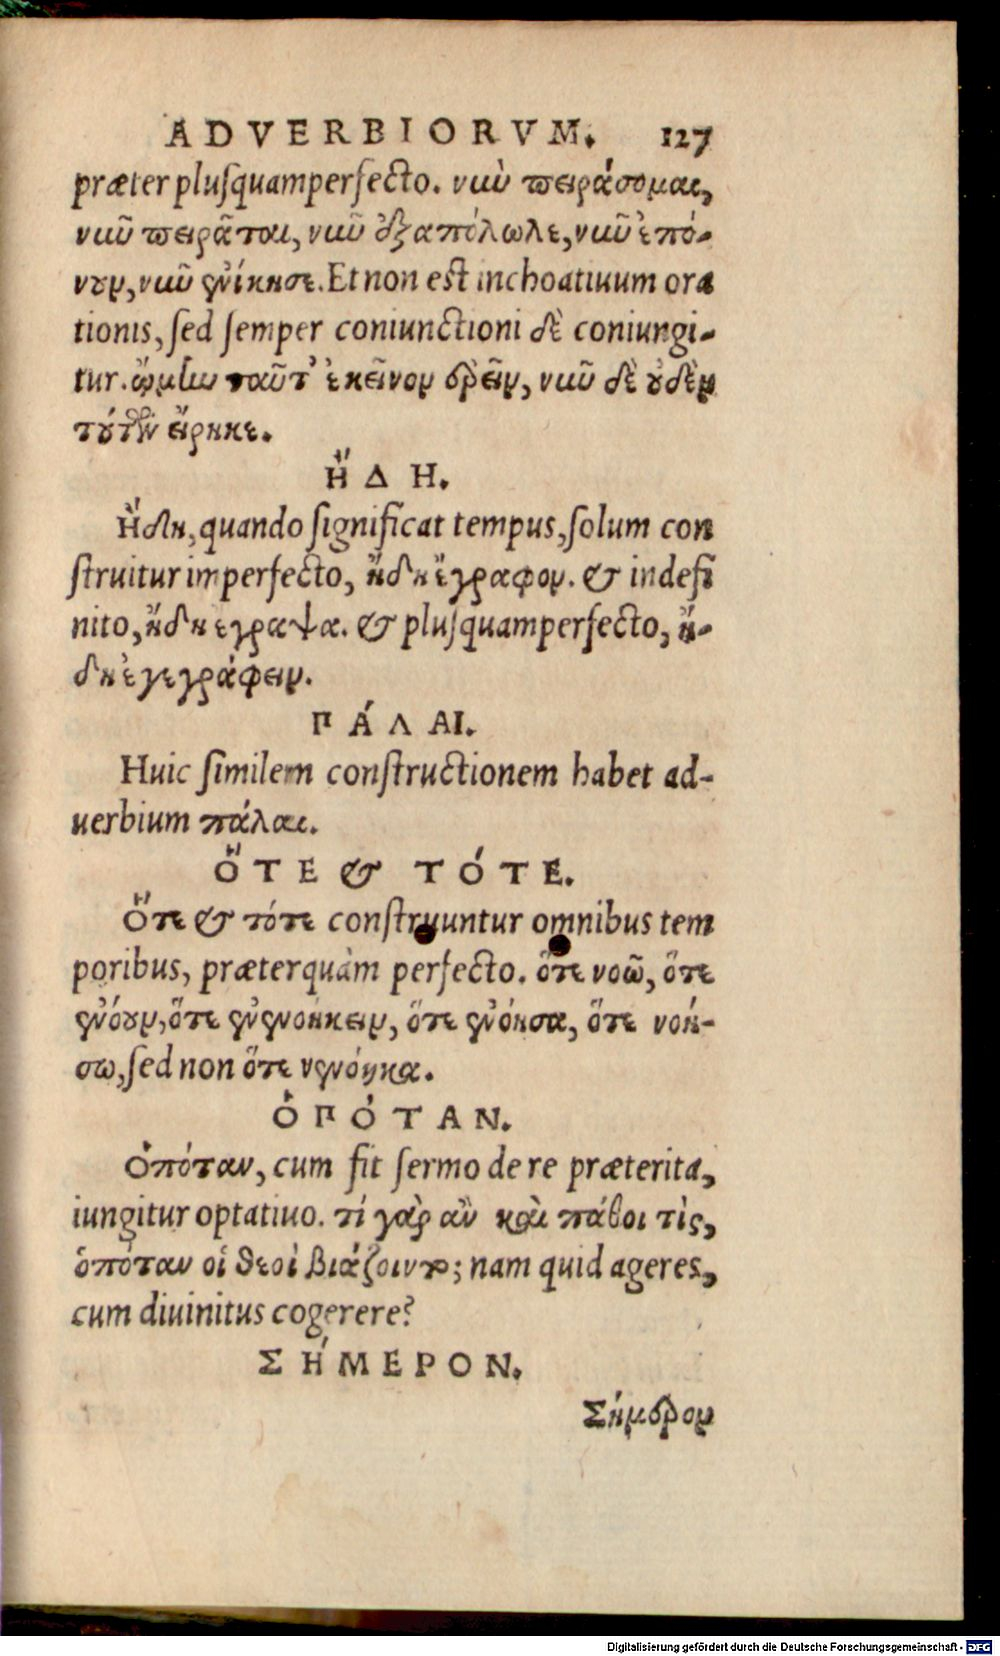 ADVERBIORVM. 127
præter plusquamperfecto. νιῦ πειράσομαι,
νιῦ πειρᾶται, νιῦ ἐξαπόλωλε, νιῦ ἐπό-
νουν, νιῦ ἐνίκησε. Et non est inchoatiuum ora
tionis, sed semper coniunctioni δὲ coniungi-
tur. ᾤμην ταῦτ' ἐκεῖνον ἐρεῖν, νιῦ δὲ οὐδὲν
τούτων εἴρηκε.
Η῎ΔΗ.
Η῎δη, quando significat tempus, solum con
struitur imperfecto, ἤδη ἔγραφον. & indefi
nito, ἤδη εγραψα. & plusquamperfecto, ἤ-
δη ἐγεγράφειν.
ΠΑ´ΛΑΙ.
Huic similem constructionem habet ad-
uerbium πάλαι.
Ο῞ΤΕ & ΤΟ´ΤΕ.
Ο῞τε & τότε construuntur omnibus tem
poribus, præterquàm perfecto. ὅτε νοῶ, ὅτε
ἐνόουν, ὅτε ἐνενοήκειν, ὅτε ἐνόησα, ὅτε νοή-
σω, sed non ὅτε νενόηκα.
Ο῾ΠΟ´ΤΑΝ.
Ο῾πόταν, cum fit sermo de re præterita,
iungitur optatiuo. τί γὰρ ἂν καὶ πάθοι τὶς,
ὁπόταν οἱ θεοὶ βιάζοιντο; nam quid ageres,
cum diuinitus cogerere?
ΣΗ´ΜΕΡΟΝ.
Σήμερον
Digitalisierung gefördert durch die Deutsche Forschungsgemeinschaft - DFG